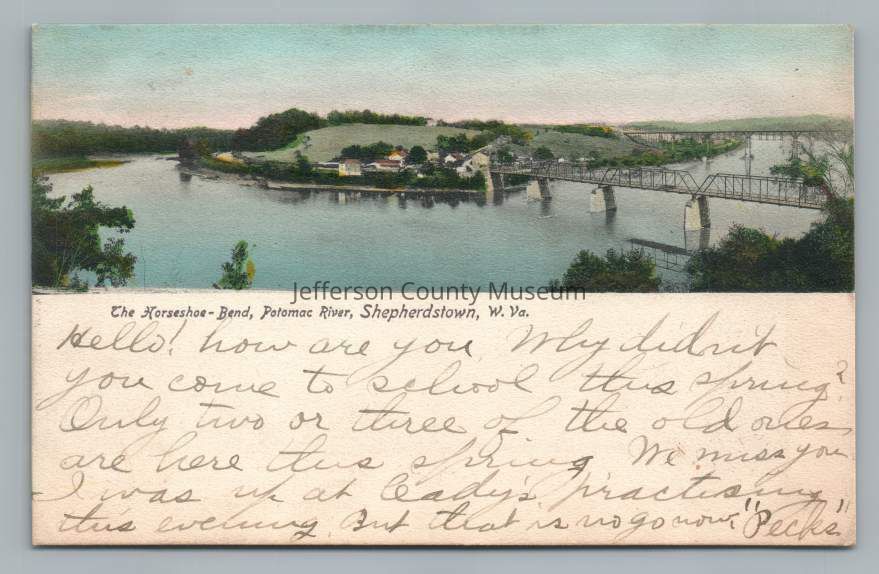 Jefferson County Museum
The Horseshoe-Bend, Potomac River, Shepherdstown, W. Va.
Hello! how are you. Why didn't
you come to school this spring?
Only two or three of the old ones
are here this spring. We miss you
I was up at practising
this evening. But that is no go now. "Pecks"